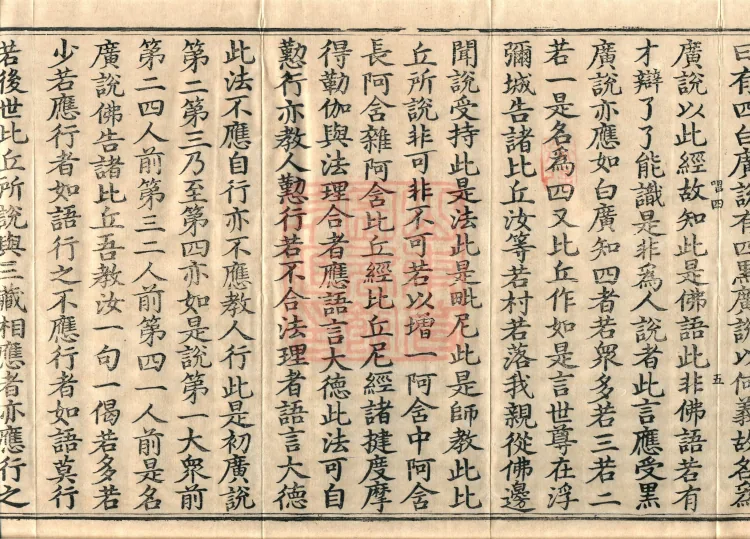 曰有四白廣說有四黑廣說以何義故名為
廣說以此經故知此是佛語此非佛語若有
㫪四
五
才辯了了能識是非為人說者此言應受黑
廣說亦應如白廣知四者若衆多若三若二
若一是名為四又比丘作如是言世尊在浮
彌城告諸比丘汝等若村若落我親從佛邊
聞說受持此是法此是毗尼此是師教此比
丘所說非可非不可若以增一阿舍中阿舍
長阿舍雜阿舍比丘經比丘尼經諸揵度摩
得勒伽與法理合者應語言大德此法可自
懃行亦教人懃行若不合法理者語言大德
此法不應自行亦不應教人行此是初廣說
第二第三乃至第四亦如是說第一大衆前
第二四人前第三二人前第四一人前是名
廣說佛告諸比丘吾教汝一句一偈若多若
少若應行者如語行之不應行者如語莫行
若後世比丘所說與三藏相應者亦應行之